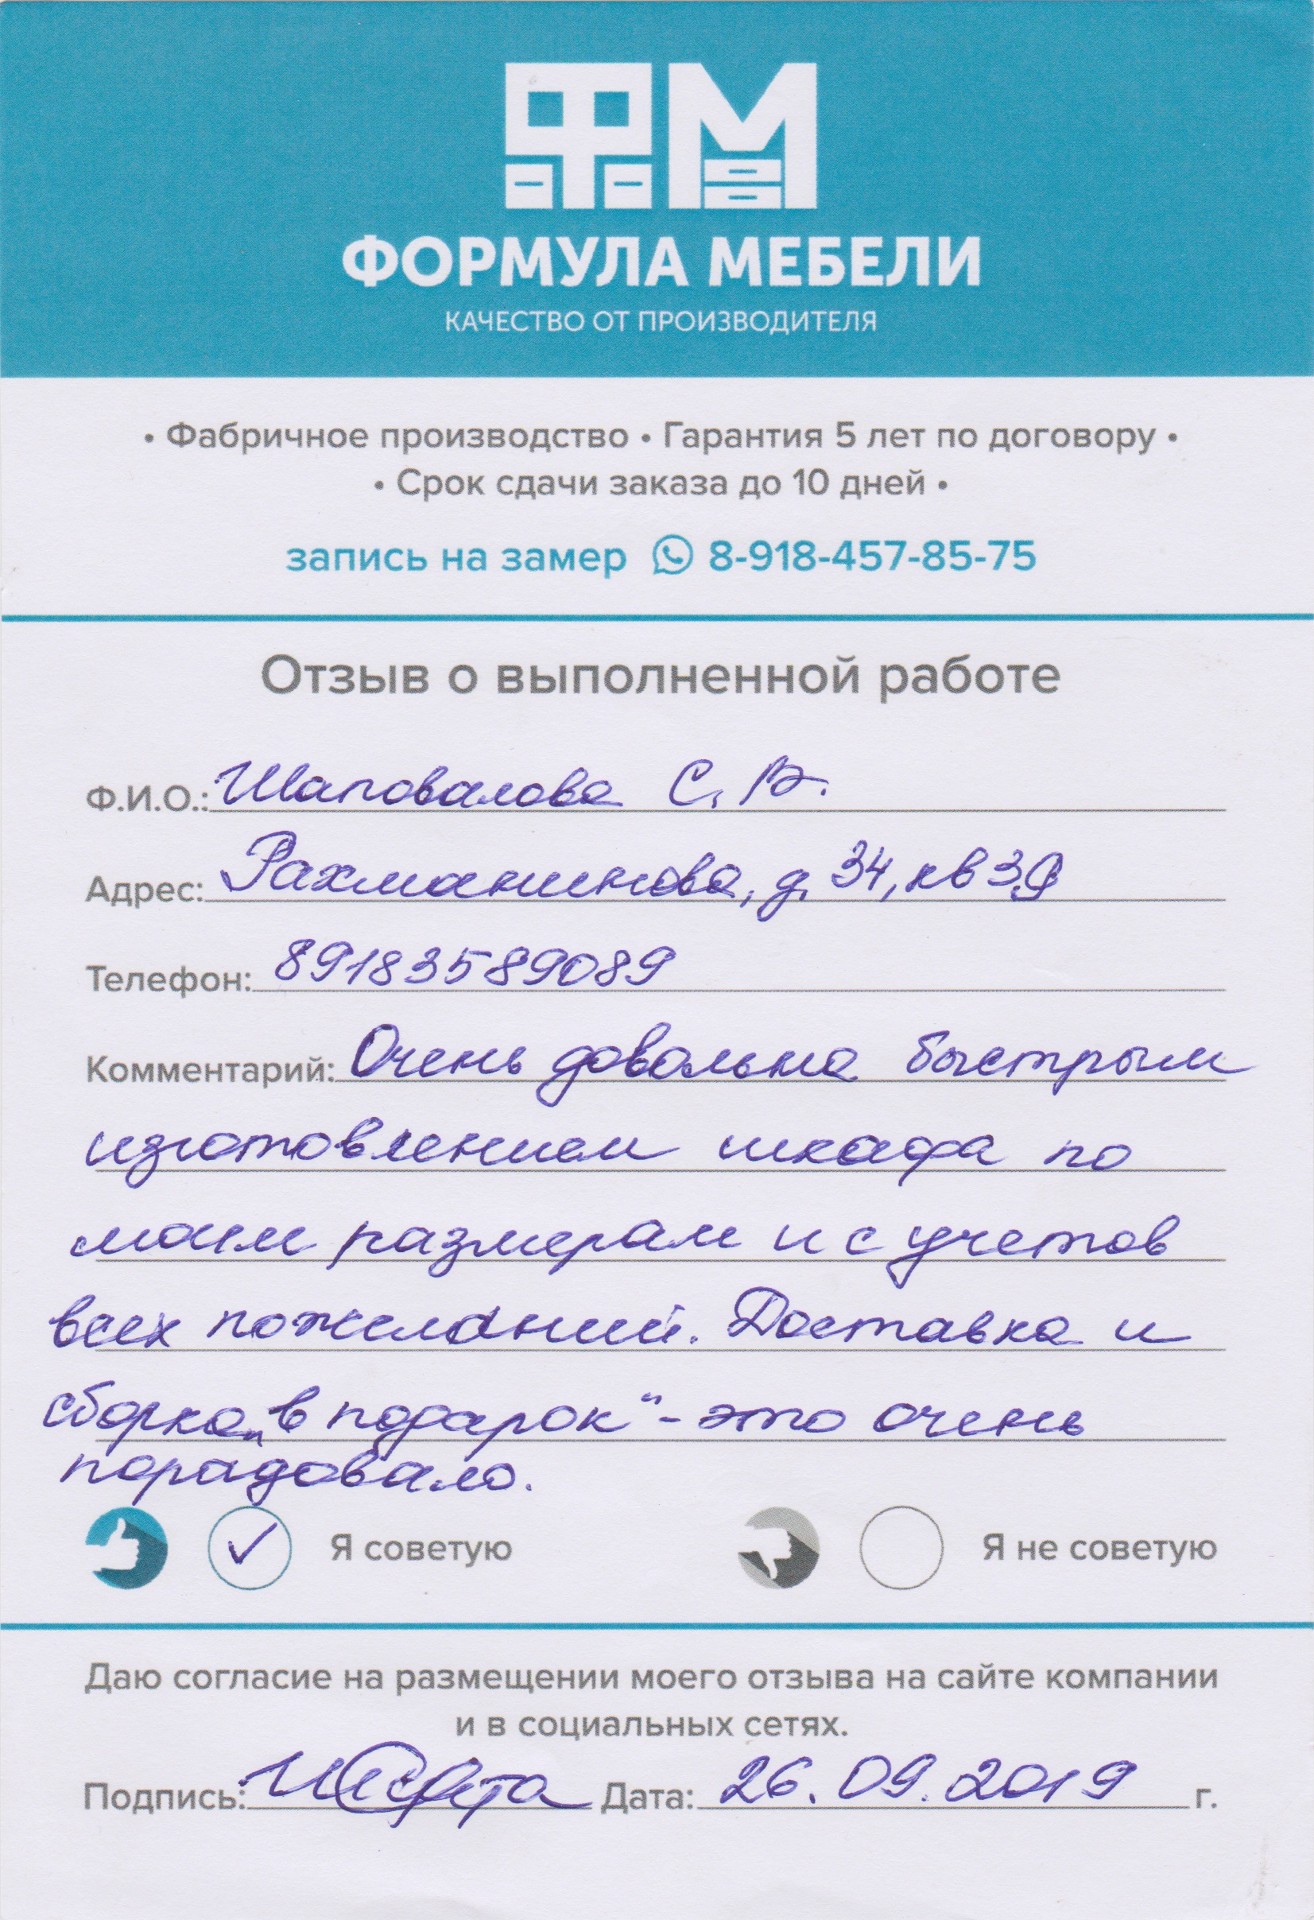 ФМ
ФОРМУЛА МЕБЕЛИ
КАЧЕСТВО ОТ ПРОИЗВОДИТЕЛЯ
• Фабричное производство • Гарантия 5 лет по договору •
• Срок сдачи заказа до 10 дней •
запись на замер 8-918-457-85-75
Отзыв о выполненной работе
Ф.И.О.: Шаповалова С. В.
Адрес: Рахманинова, д. 34, кв 39
Телефон: 89183589089
Комментарий: Очень довольна быстрым
изготовлением шкафа по
моим размерам и с учетов
всех пожеланий. Доставка и
сборка „в подарок" - это очень
порадовало.
Я советую Я не советую
Даю согласие на размещении моего отзыва на сайте компании
и в социальных сетях.
Подпись: Дата: 26.09.2019 г.